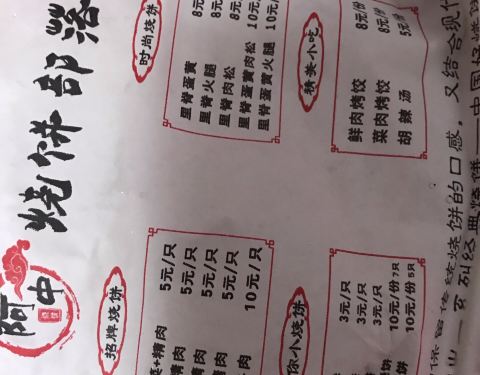 阿中
烧饼部落
招牌烧饼
+精肉 5元/只
精肉 5元/只
肉 5元/只
肉 5元/只
肉 10元/只
时尚烧饼
里脊蛋黄 8元
里脊火腿 8元
里脊肉松 8元
里脊蛋黄肉松 10元
里脊蛋黄火腿 10元
你小烧饼
3元/只
3元/只
3元/只
饼 10元/份 7只
饼 10元/份 5只
精美小吃
鲜肉烤饺 8元/份
菜肉烤饺 8元/份
胡辣汤 5元/份
保留传统烧饼的口感，又结合现代
出一系列经典烧饼—中国好烧饼